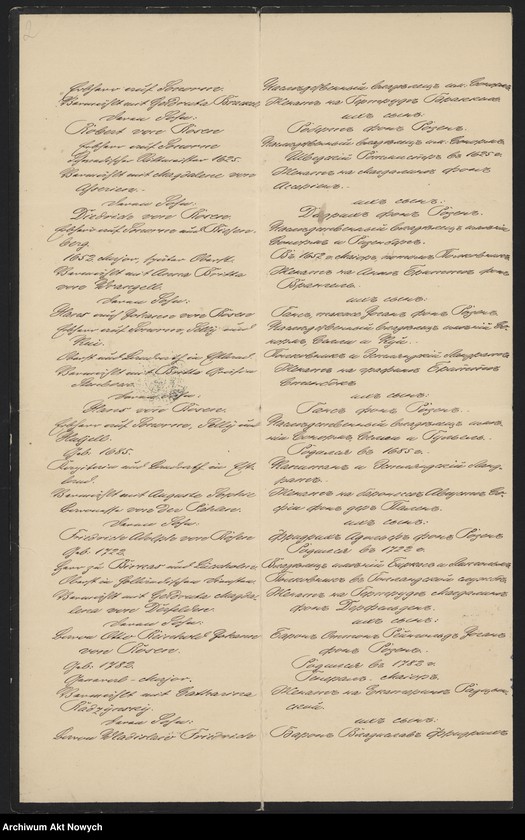 2
Erbherr auf Sonorm.
Vermählt mit Gertruta
deren Sohn:
Robert von Rosen
Erbherr auf Sonorm
Schwedischer Rittmeister 1625.
Vermählt mit Magdalena von
Asserien.
deren Sohn:
Diedrich von Rosen.
Erbherr auf Sonorm und
1652 Major, später Oberst.
Vermählt mit Anna Britta
von Wrangell.
deren Sohn:
Hans auf Johann von Rosen
Erbherr auf Sonorm, und
Kui.
Oberst und Landrath in Estland
Vermählt mit Britta
deren Sohn:
Hans von Rosen.
Erbherr auf Sonorm, und
Geb. 1685.
Kapitain und Landrath in Est-
land.
Vermählt mit Augusta Sophia
Baronesse von Der Pahlen.
deren Sohn:
Friedrich Adolph von Rosen
Geb. 1722.
Herr zu Birkas und
Oberst in Holländischen
Vermählt mit Gertruta Magda-
lena von
deren Sohn:
Baron Otto Reinhold Johann
von Rosen.
Geb. 1782.
General-Major.
Vermählt mit Catharina
Radzynsky.
deren Sohn:
Baron Wladislaw Friedrich
Наследственный владелец им.
Женатъ на Гертрудѣ
ихъ сынъ:
Робертъ фонъ Розенъ.
Наследственный владелец им.
Шведскій Ротмистръ въ 1625 г.
Женатъ на Магдалинѣ фонъ
ихъ сынъ:
фонъ Розенъ.
Наследственный владелец имѣній
и
Въ 1652 г. Маіоръ, потомъ Полковникъ
Женатъ на Аннѣ фонъ
Врангель.
ихъ сынъ:
Гансъ, также Іоганъ фонъ Розенъ.
Наследственный владелец имѣній Со-
и Куй.
Полковникъ и Эстляндскій Ландратъ
Женатъ на графинѣ
Стенбокъ
ихъ сынъ:
Гансъ фонъ Розенъ.
Наследственный владелец имѣ-
ній и
Родился въ 1685 г.
Капитанъ и Эстляндскій Ланд-
ратъ.
Женатъ на баронессѣ Августѣ Со-
фіи фонъ деръ Паленъ.
ихъ сынъ:
Фридрихъ Адольфъ фонъ Розенъ
Родился въ 1722 г.
Владелец имѣній Биркасъ и
Полковникъ въ Голландской службѣ
Женатъ на Гертрудѣ Магдалинѣ
фонъ
ихъ сынъ:
Баронъ Оттонъ Рейнгольдъ Іоганъ
фонъ Розенъ.
Родился въ 1782 г.
Генералъ-Маіоръ.
Женатъ на Екатеринѣ Радзын-
ской.
ихъ сынъ:
Баронъ Владиславъ Фридрихъ
Archiwum Akt Nowych